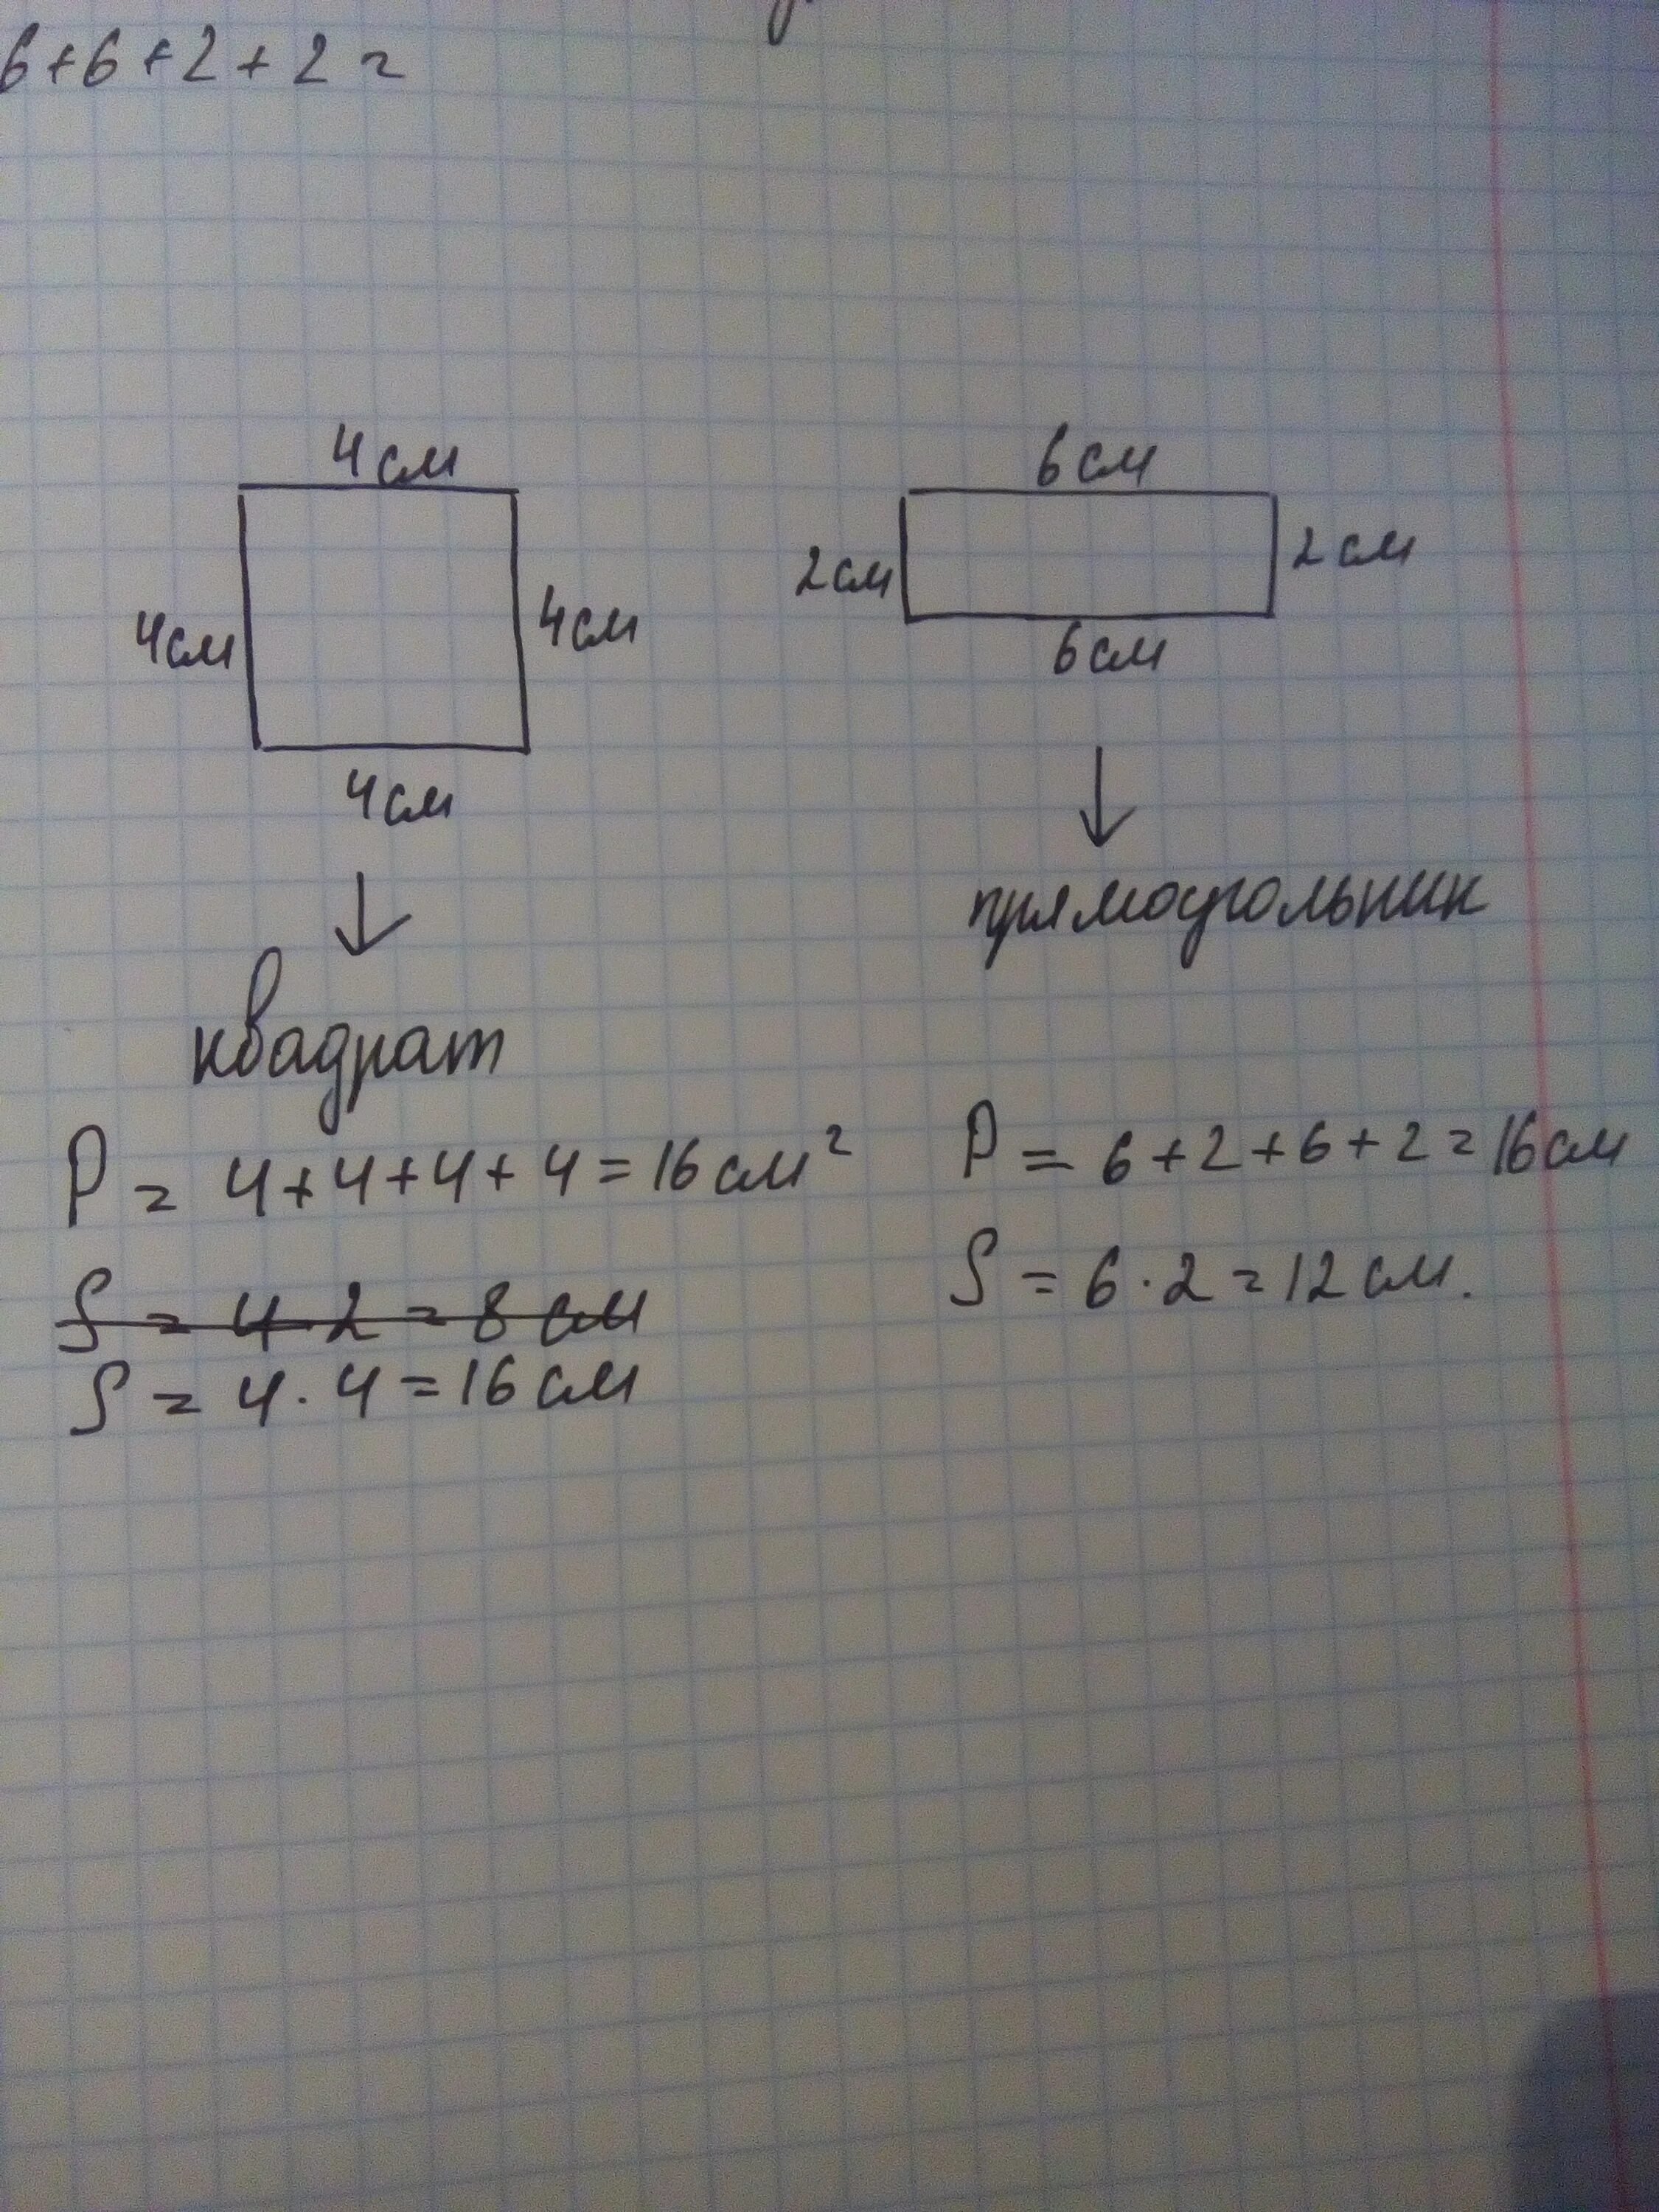 6+6+2+2=
4см
4см
4см
4см
6см
2см
2см
6см
квадрат
прямоугольник
P = 4+4+4+4=16см²
S = 4·2=8см
S = 4·4=16см
P = 6+2+6+2=16см
S = 6·2=12см.